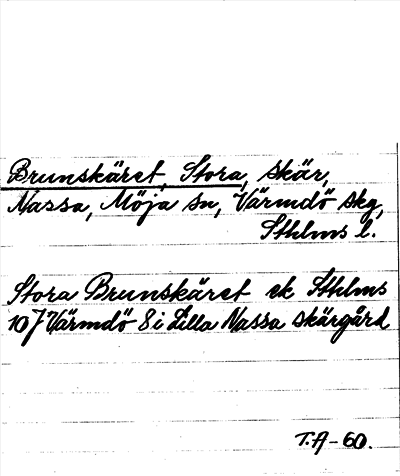 Brunskäret, Stora, skär,
Nassa, Möja sn, Värmdö skg,
Sthlms l.
Stora Brunskäret ek Sthlms
107 Värmdö 8 i Lilla Nassa skärgård
T.A-60.